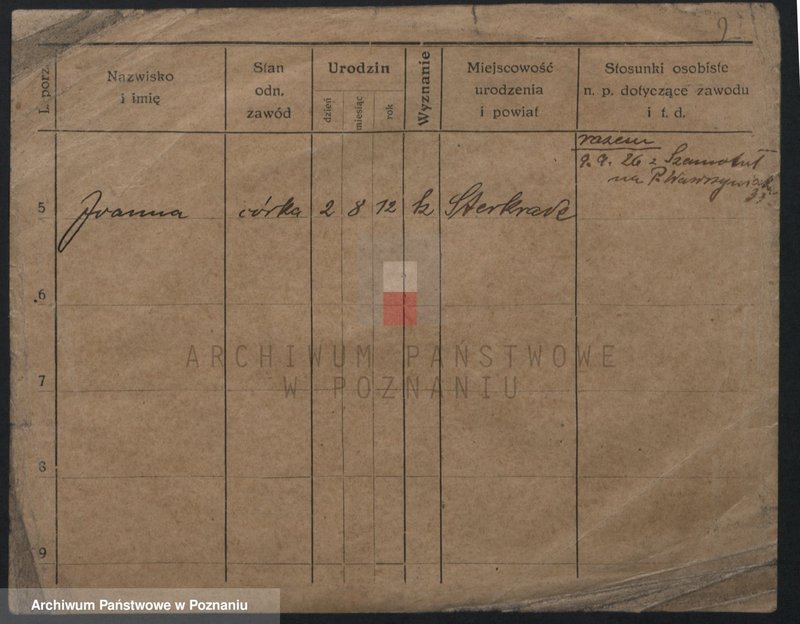 2
L. porz.
Nazwisko
i imię
Stan
odn.
zawód
Urodzin
dzień
miesiąc
rok
Wyznanie
Miejscowość
urodzenia
i powiat
Stosunki osobiste
n. p. dotyczące zawodu
i t. d.
razem
9. 9. 26 z Szamotuł
na P. Wawrzyniaka
5 Joanna córka 2 8 12 k Sterkrade
6
ARCHIWUM PAŃSTWOWE
W POZNANIU
7
8
9
Archiwum Państwowe w Poznaniu